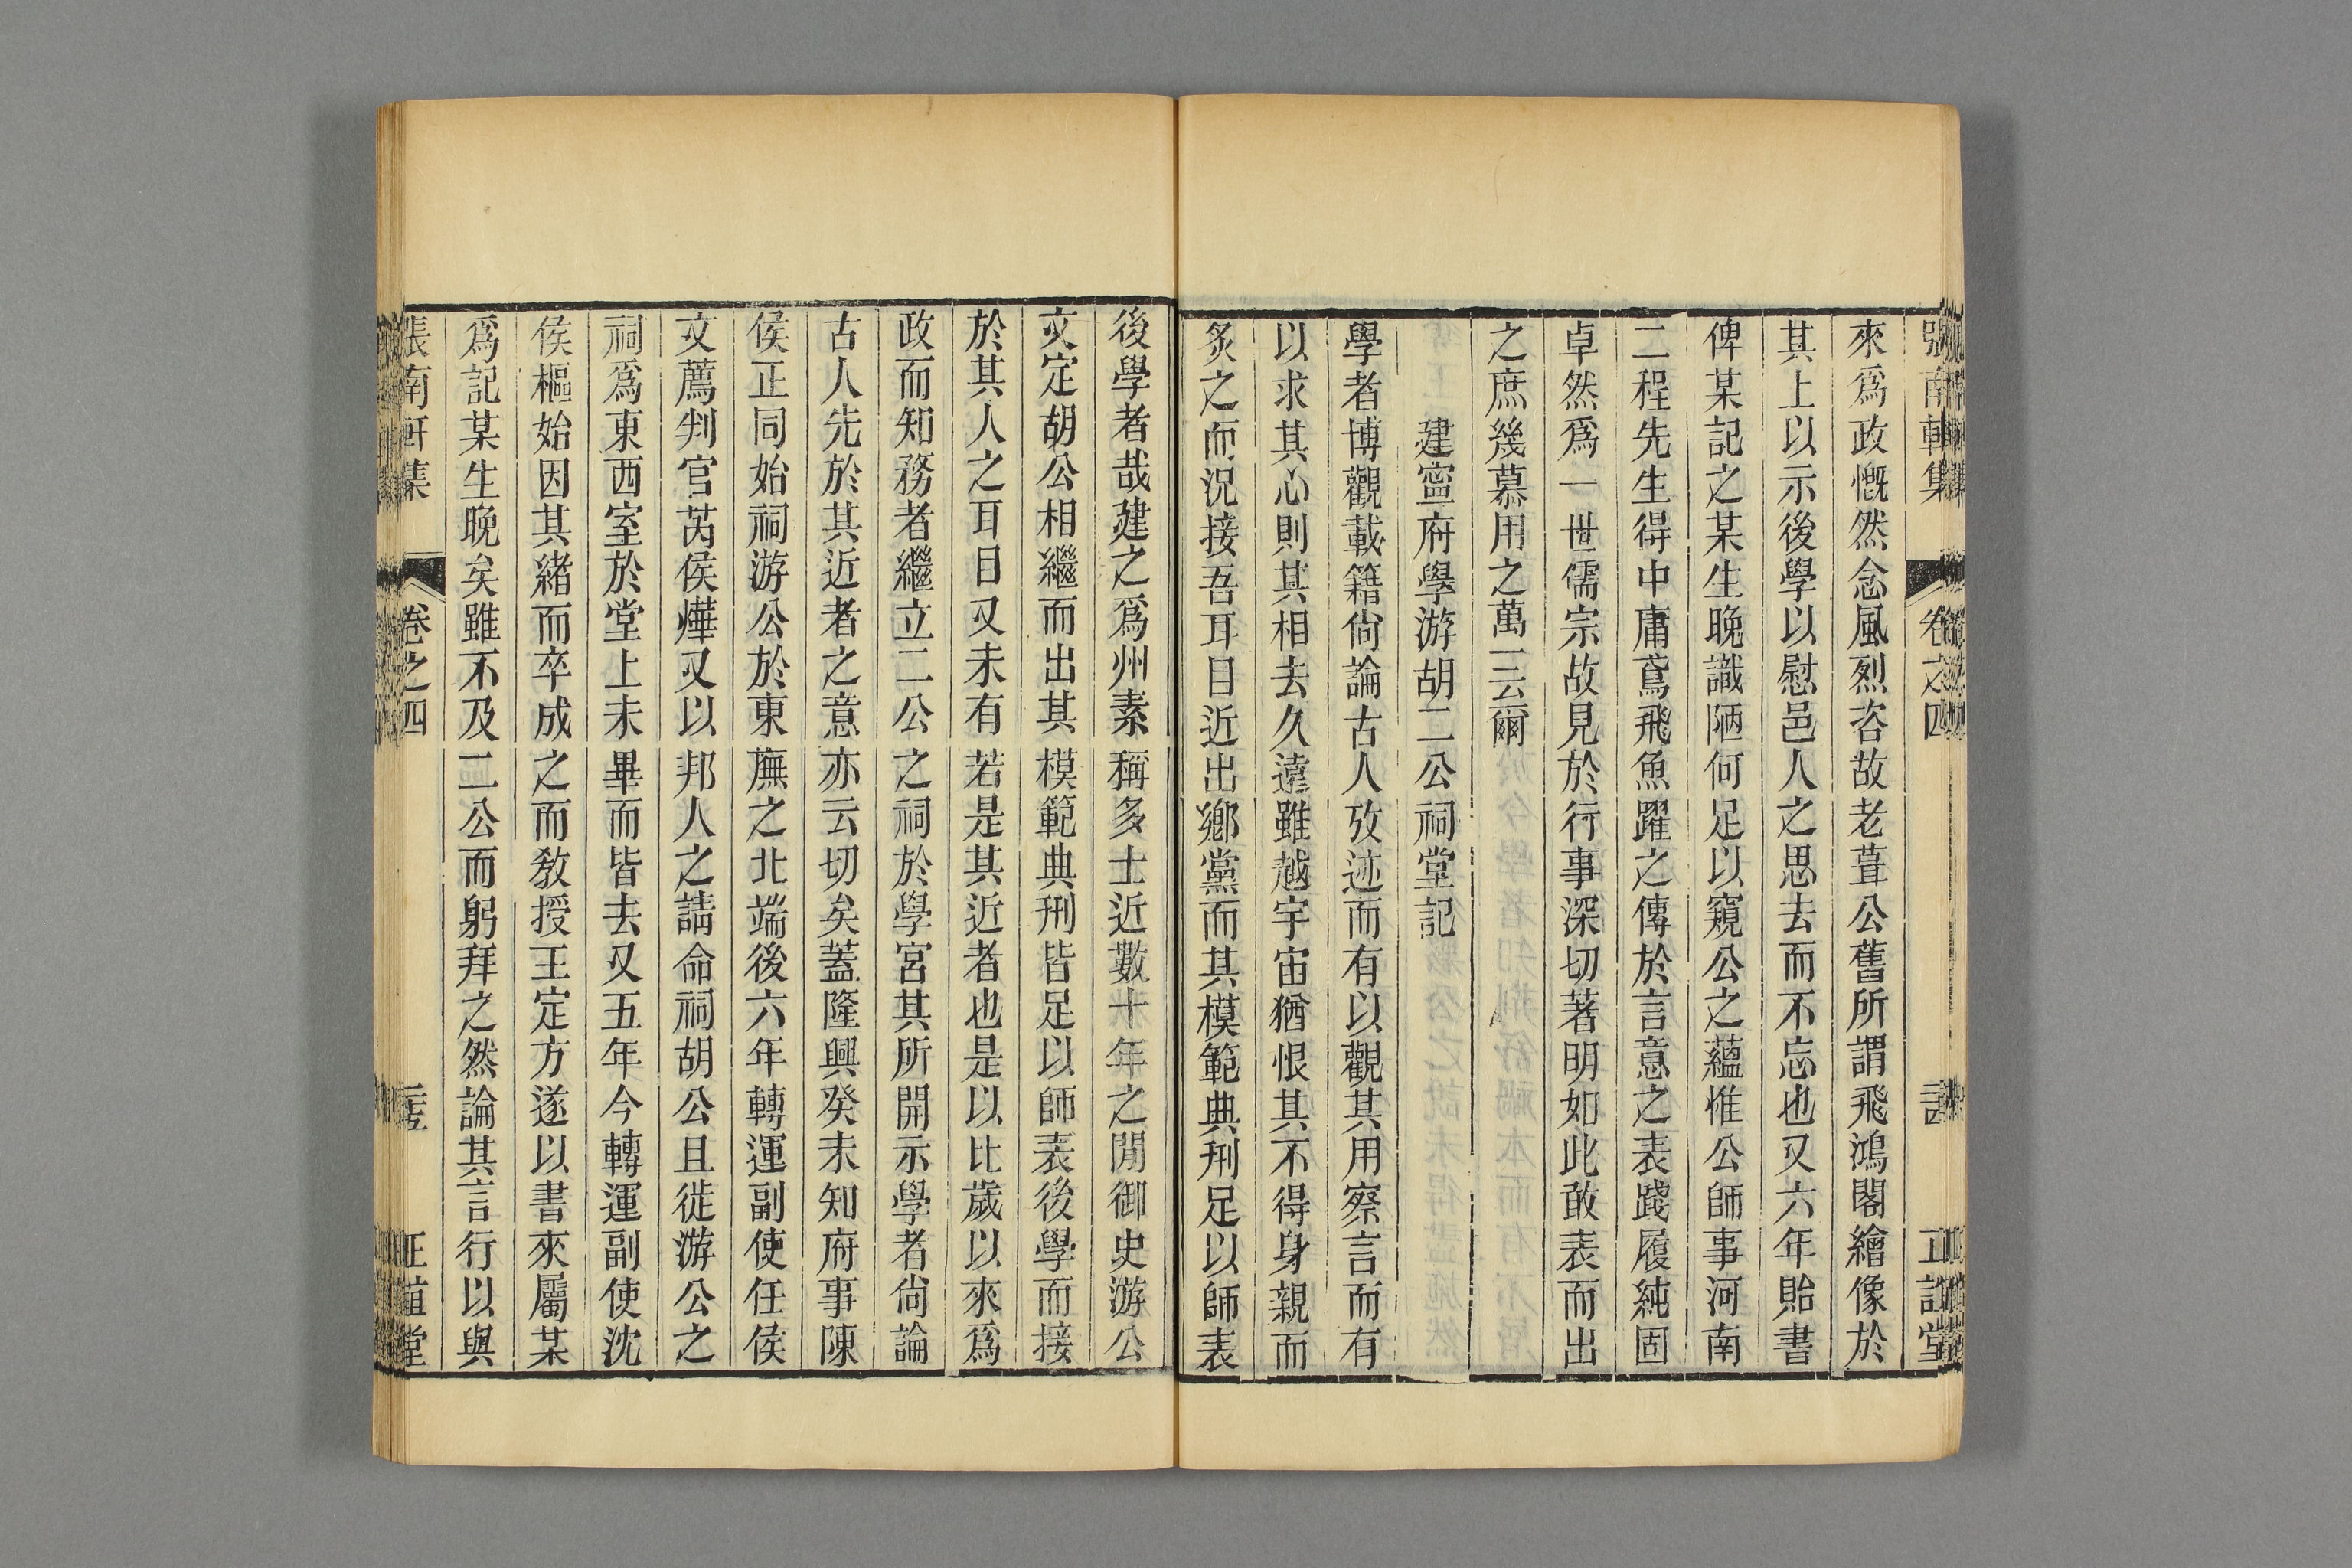 張南軒集 卷之四 正誼堂
來爲政慨然念風烈咨故老葺公舊所謂飛鴻閣繪像於
其上以示後學以慰邑人之思去而不忘也又六年貽書
俾某記之某生晚識陋何足以窺公之蘊惟公師事河南
二程先生得中庸鳶飛魚躍之傳於言意之表踐履純固
卓然爲一世儒宗故見於行事深切著明如此敢表而出
之庶幾慕用之萬一云爾
建寧府學游胡二公祠堂記
學者博觀載籍尙論古人攷迹而有以觀其用察言而有
以求其心則其相去久遠雖越宇宙猶恨其不得身親而
炙之而況接吾耳目近出鄉黨而其模範典刑足以師表
後學者哉建之爲州素稱多士近數十年之閒御史游公
文定胡公相繼而出其模範典刑皆足以師表後學而接
於其人之耳目又未有若是其近者也是以比歲以來爲
政而知務者繼立二公之祠於學宮其所開示學者尙論
古人先於其近者之意亦云切矣蓋隆興癸未知府事陳
侯正同始祠游公於東廡之北端後六年轉運副使任侯
文薦判官芮侯燁又以邦人之請命祠胡公且徙游公之
祠爲東西室於堂上未畢而皆去又五年今轉運副使沈
侯樞始因其緒而卒成之而敎授王定方遂以書來屬某
爲記某生晚矣雖不及二公而躬拜之然論其言行以與
張南軒集 卷之四 正誼堂